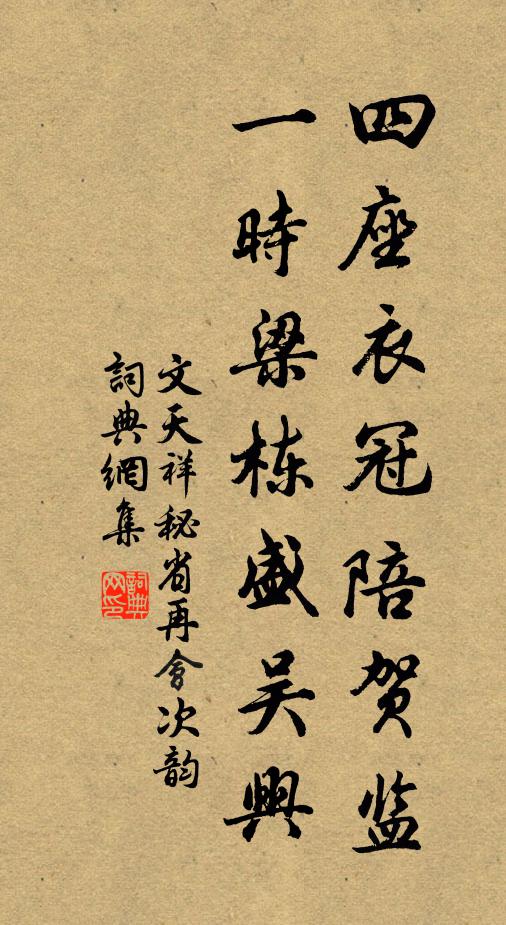 四座衣冠陪贺监
一時梁栋盛吴興
文天祥秘省再會次韵
詞典網集
詞典网印